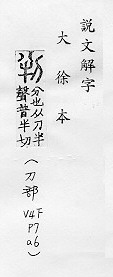 說文解字
大徐本
判
分也从刀半
聲普半切
(刀部
V4F
P7
a6)